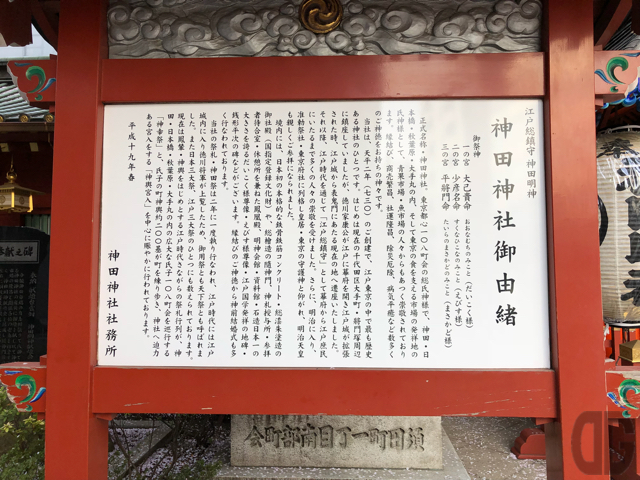 江戸総鎮守 神田明神
神田神社御由緒
御祭神
一の宮 大己貴命 おおなむちのみこと(だいこく様)
二の宮 少彦名命 すくなひこなのみこと(えびす様)
三の宮 平将門命 たいらのまさかどのみこと(まさかど様)
正式名称・神田神社。東京都心一〇八町会の総氏神様で、神田・日
本橋・秋葉原・大手丸の内、そして東京の食を支える市場の発祥地の
氏神様として、青果市場・魚市場の人々からもあつく崇敬されており
ます。縁結び、商売繁昌、社運隆昌、除災厄除、病気平癒など数多く
のご神徳をお持ちの神々です。
当社は、天平二年(七三〇)のご創建で、江戸東京の中で最も歴史
ある神社のひとつです。はじめは現在の千代田区大手町・将門塚周辺
に鎮座していましたが、徳川家康公が江戸に幕府を開き江戸城が拡張
された時、江戸城から表鬼門にあたる現在の地へ遷座いたしました。
それ以降、江戸時代を通じて「江戸総鎮守」として幕府から江戸庶民
にいたるまで多くの人々の崇敬を受けました。さらに、明治に入り、
准勅祭社・東京府社に列格し皇居・東京の守護神と仰がれ、明治天皇
も親しくご参拝になられました。
境内には、日本初の本格的な鉄骨鉄筋コンクリート・総朱漆塗の
御社殿(国指定登録文化財)や、総檜造の随神門、神札授与所・参拝
者待合室・休憩所を兼ねた鳳凰殿、明神会館・資料館・石造日本一の
大きさを誇るだいこく様尊像・えびす様尊像・江戸国学発祥の地碑・
銭形平次の碑などがございます。縁結びのご神徳から神前結婚式も多
く行なわれております。
当社の祭礼・神田祭は二年に一度執り行なわれ、江戸時代には江戸
城内に入り徳川将軍が上覧したため、御用祭とも天下祭とも呼ばれま
した。また日本三大祭、江戸三大祭のひとつにも数えられております。
現在は鳳輦・神輿をはじめとする江戸時代さながらの祭礼行列が、神
田・日本橋・秋葉原・大手丸の内の広大な氏子一〇八町会を巡行する
「神幸祭」と、氏子の町神輿約二〇〇基が町を練り歩き、神社へ迫力
ある宮入をする「神輿宮入」を中心に賑やかに行われております。
平成十九年春
神田神社社務所
会町部南目丁一町田須
奉献之碑